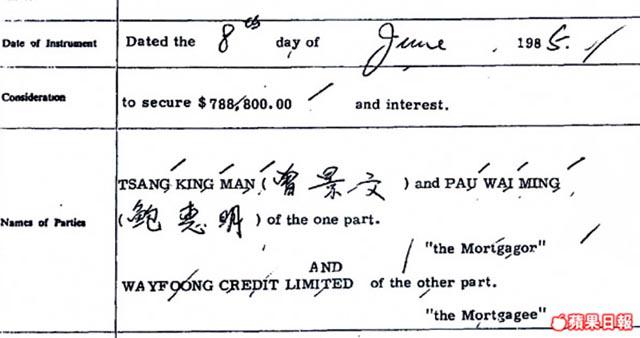 Date of Instrument
Dated the 8th day of June, 1985.
Consideration
to secure $788,800.00 and interest.
Names of Parties
TSANG KING MAN (曾景文) and PAU WAI MING
(鮑惠明) of the one part.
"the Mortgagor"
AND
WAYFOONG CREDIT LIMITED of the other part.
"the Mortgagee"
蘋果日報